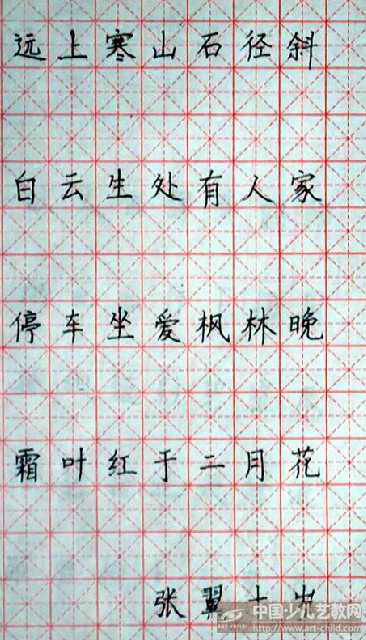 远上寒山石径斜
白云生处有人家
停车坐爱枫林晚
霜叶红于二月花
张翼
中国少儿艺教网
http://www.art-child.com